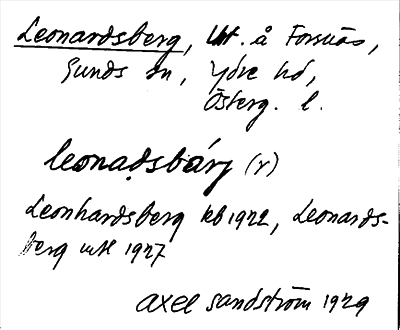 Leonardsberg, Utt. å Forsnäs,
Sunds sn, Ydre hd,
Österg. l.
leonaḍsbärj (r)
Leonhardsberg kb 1922, Leonards-
berg mtl 1927
Axel Sandström 1929